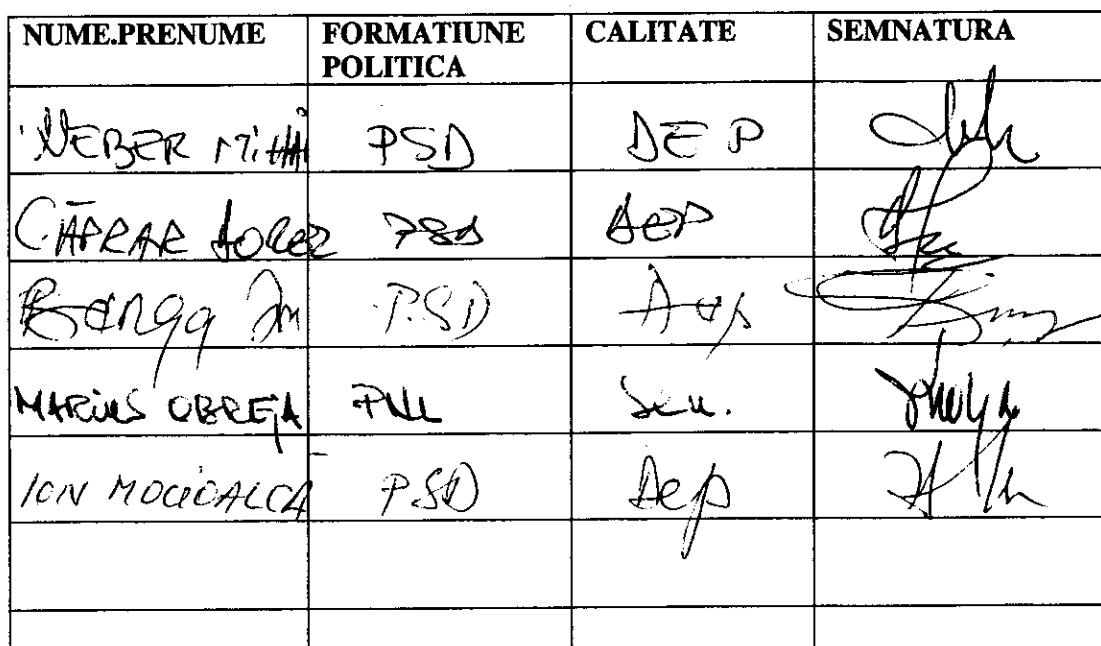 NUME.PRENUME FORMATIUNE POLITICA CALITATE SEMNATURA
WEBER MiHAi PSD DEP
CĂPRAR DOREL PSD DEP
Banga Ion P.SD Dep
MARIUS OBREJA PNL Sen.
ION MOCIOALCA PSD Dep